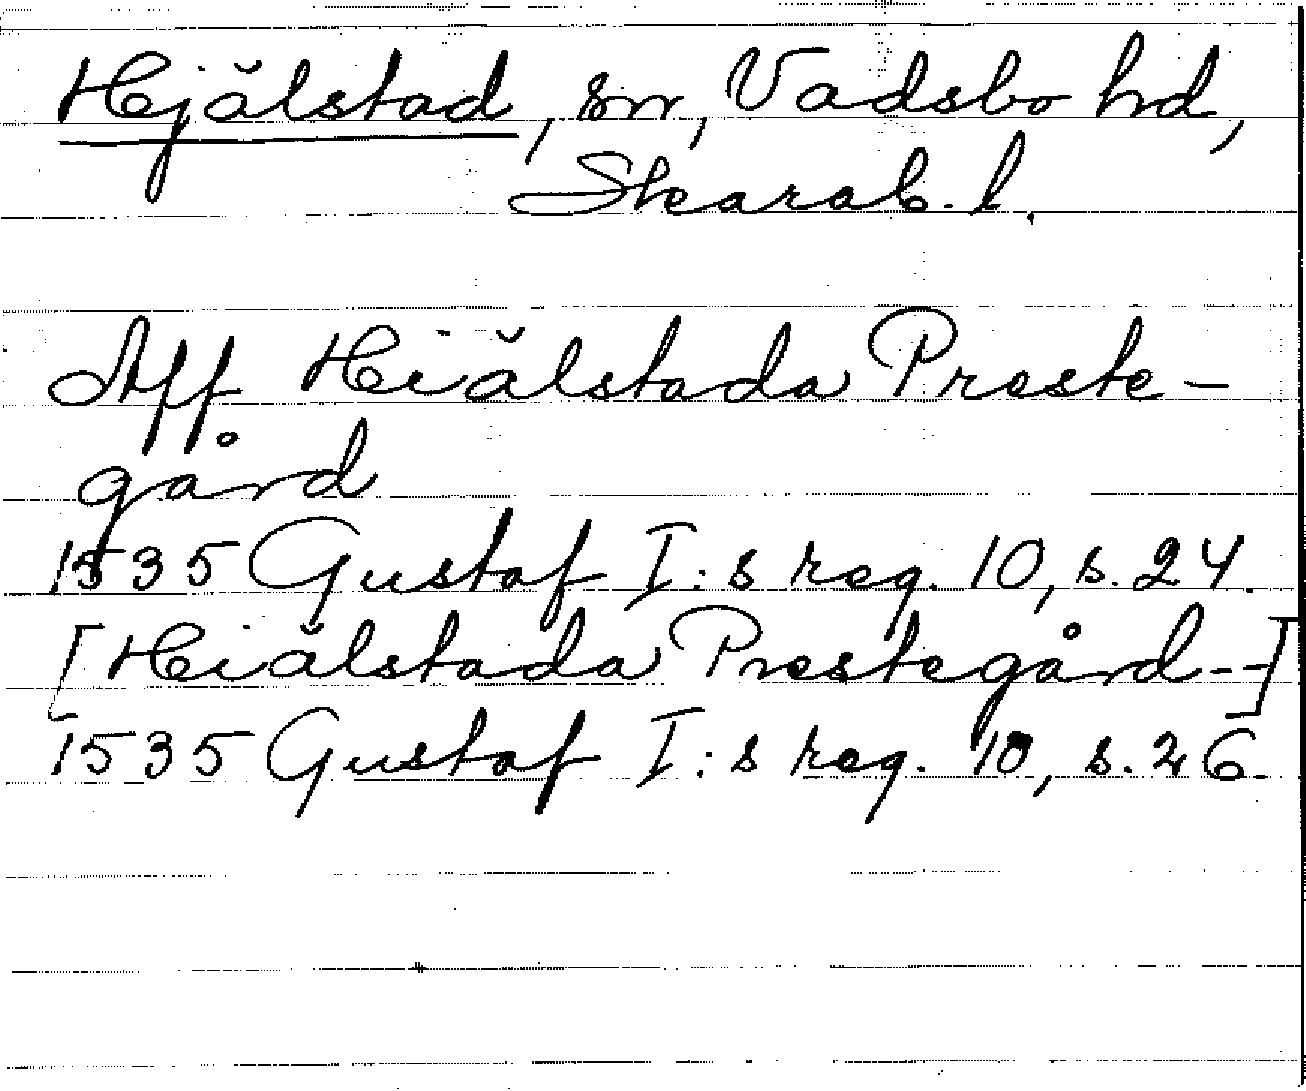 Hjälstad, sn, Vadsbo hd,
Skarab. l.
Aff Hiälstada Preste-
gård
1535 Gustaf I:s reg. 10, s. 24.
[Hiälstada Prestegård--]
1535 Gustaf I:s reg. 10, s. 26.